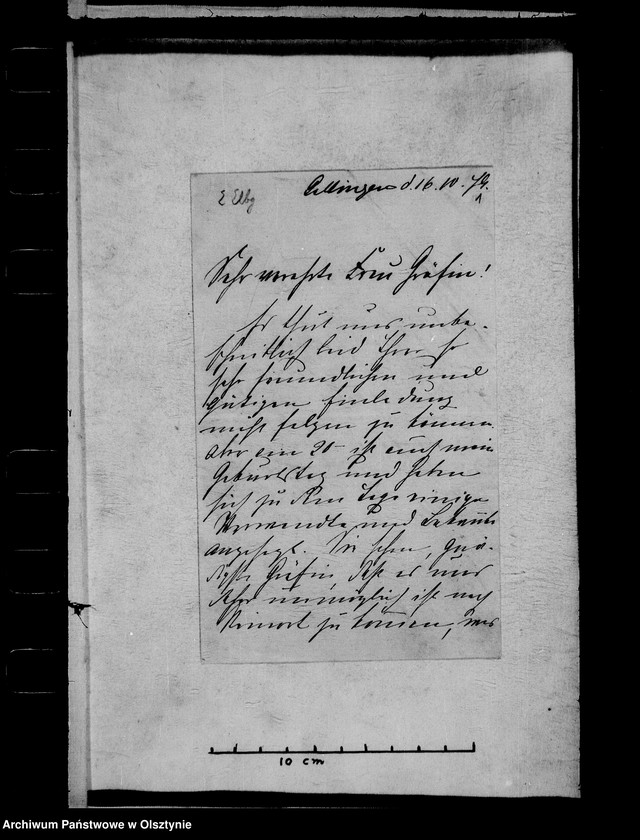 E Elbg
d. 16. 10. 74.
Sehr verehrte Frau Gräfin!
Es thut uns unbe-
schreiblich leid Ihrer so
sehr freundlichen und
gütigen Einladung
nicht folgen zu können
aber am 20 ist auch mein
Geburtstag und haben
sich zu dem Tage einige
Verwandte und Bekannte
angesagt. Sie sehen, gnä-
digste Gräfin, daß es uns
aber unmöglich ist nach
zu können, uns
10 cm
Archiwum Państwowe w Olsztynie